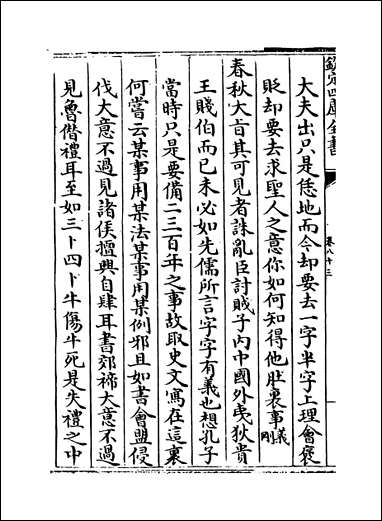 欽定四庫全書
卷八十三
大夫出只是恁地而今却要去一字半字上理會褒
貶却要去求聖人之意你如何知得他肚裏事義剛
春秋大㫖其可見者誅亂臣討賊子内中國外夷狄貴
王賤伯而已未必如先儒所言字字有義也想孔子
當時只是要備二三百年之事故取史文寫在這裏
何嘗云某事用某法某事用某例邪且如書會盟侵
伐大意不過見諸侯擅興自肆耳書郊禘大意不過
見魯僭禮耳至如三卜四卜牛傷牛死是失禮之中